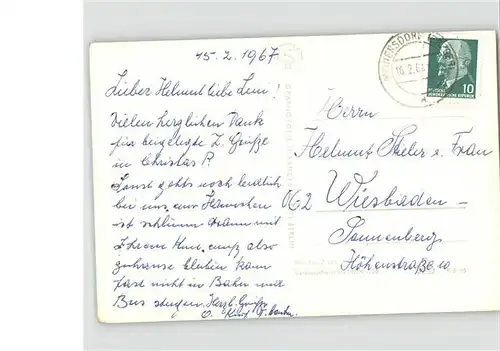 15.2.1967
Lieber Helmut liebe Leni!
Vielen herzlichen Dank
für beigelegte Z. Grüße
in Christas P.
Sonst gehts noch leidlich
bei uns, nur Hannchen
ist schlimm dran mit
Ihrem Knie, muß also
zuhause bleiben kann
fast nicht in Bahn und
Bus steigen. Herzl. Grüße
Kurt
DEUTSCHE
DEMOKRATISCHE REPUBLIK
10
Herrn
Helmut u. Frau
062 Wiesbaden-
Sonnenberg
Höhenstraße 10